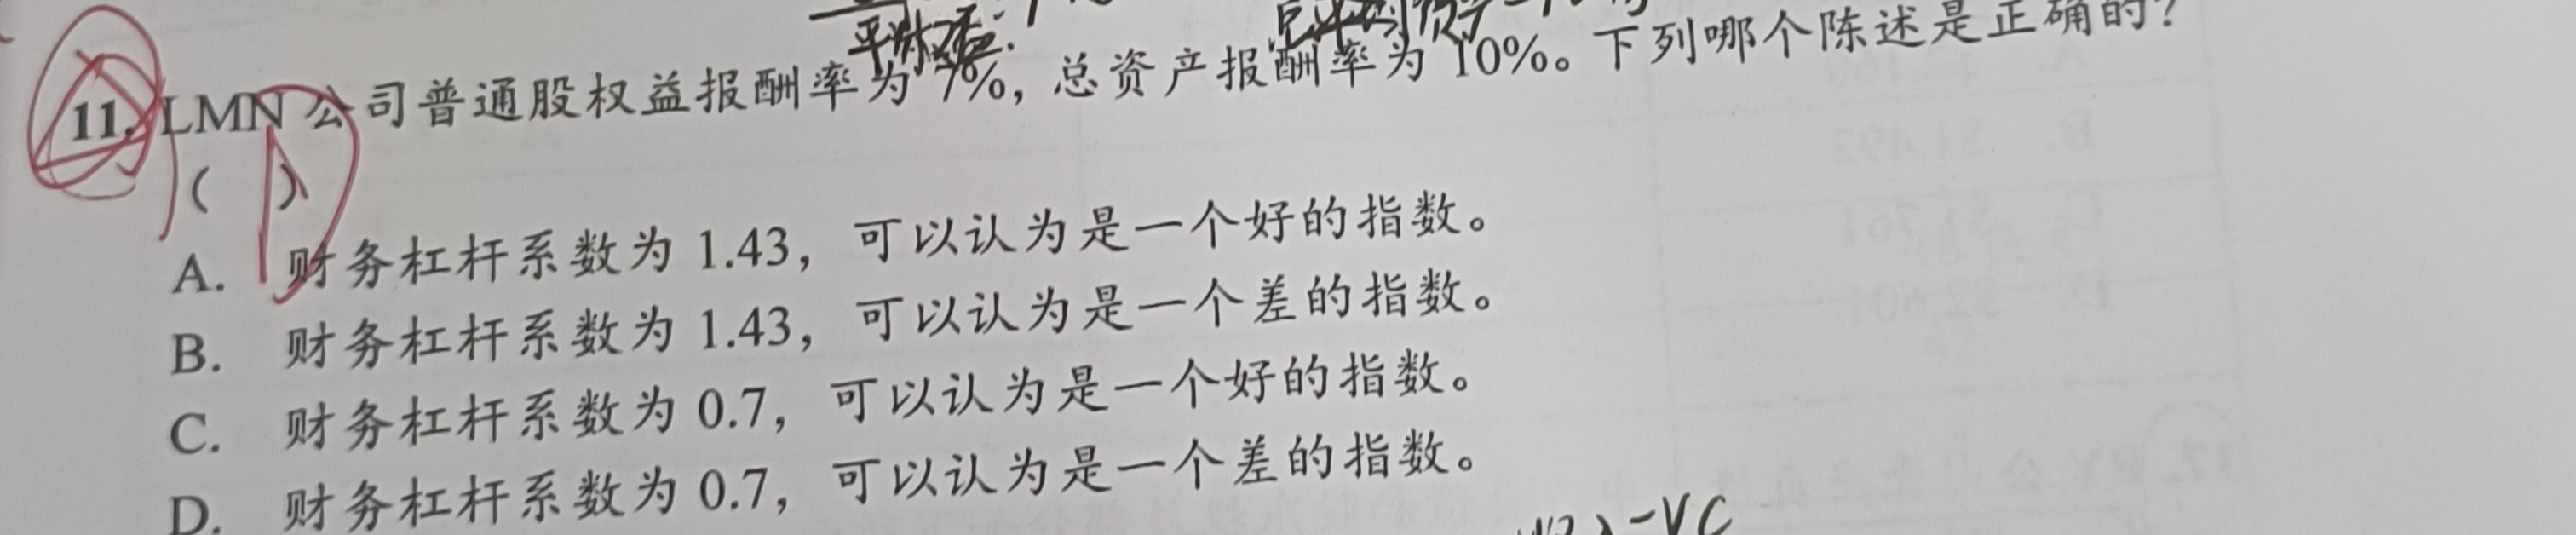 11. LMN 公司普通股权益报酬率为 7%，总资产报酬率为 10%。下列哪个陈述是正确的？
（ ）
A. 财务杠杆系数为 1.43，可以认为是一个好的指数。
B. 财务杠杆系数为 1.43，可以认为是一个差的指数。
C. 财务杠杆系数为 0.7，可以认为是一个好的指数。
D. 财务杠杆系数为 0.7，可以认为是一个差的指数。
-VC